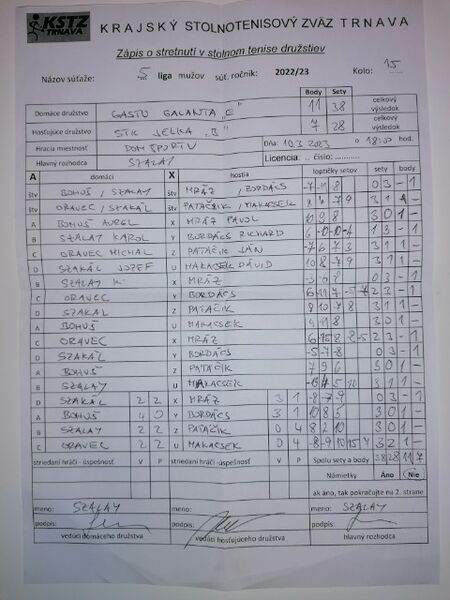 KSTZ TRNAVA KRAJSKÝ STOLNOTENISOVÝ ZVÄZ TRNAVA
Zápis o stretnutí v stolnom tenise družstiev
Názov súťaže: 5 liga mužov súť. ročník: 2022/23 Kolo: 15
Body Sety
Domáce družstvo GASTO GALANTA „E" 11 38 celkový výsledok
Hosťujúce družstvo STK JELKA „B" 7 28 celkový výsledok
Hracia miestnosť DOM ŠPORTU Dňa: 10.3.2023 o 18:00 hod.
Hlavný rozhodca SZALAY Licencia: .. číslo:
A domáci X hostia loptičky setov sety body
štv BOHUŠ / SZALAY štv MRÁZ / BORDÁCS 0 3 - 1
štv ORAVEC / SZAKÁL štv PATAČIK / MAKACSEK 3 1
A BOHUŠ AUREL X MRÁZ PAVOL 3 0 1 -
B SZALAY KAROL Y BORDÁCS RICHARD 1 3 - 1
C ORAVEC MICHAL Z PATAČIK JÁN -7 6 7 3 3 1 1 -
D SZAKÁL JOZEF U MAKACSEK DÁVID 10 8 -7 9 3 1 1 -
B SZALAY K X MRÁZ 0 3 - 1
C ORAVEC Y BORDÁCS 2 3 - 1
D SZAKAL Z PATAČIK 8 10 -7 8 3 1 1 -
A BOHUŠ U MAKACSEK 3 0 1 -
C ORAVEC X MRÁZ 2 3 - 1
D SZAKÁL Y BORDÁCS -5 -7 -8 0 3 - 1
A BOHUŠ Z PATAČIK 7 9 6 3 0 1 -
B SZALAY U MAKACSEK 3 1 1 -
D SZAKÁL 2 2 X MRÁZ 3 1 -8 -7 -9 0 3 - 1
A BOHUŠ 4 0 Y BORDÁCS 3 1 10 8 5 3 0 1 -
B SZALAY 2 2 Z PATAČIK 0 4 8 2 10 3 0 1 -
C ORAVEC 2 2 U MAKACSEK 0 4 -8 -9 10 15 4 3 2 1 -
striedaní hráči - úspešnosť V P striedaní hráči - úspešnosť V P Spolu sety a body 38 28 11 7
Námietky Áno Nie
ak áno, tak pokračujte na 2. strane
meno: SZALAY meno: meno: SZALAY
podpis: podpis: podpis:
vedúci domáceho družstva vedúci hosťujúceho družstva hlavný rozhodca